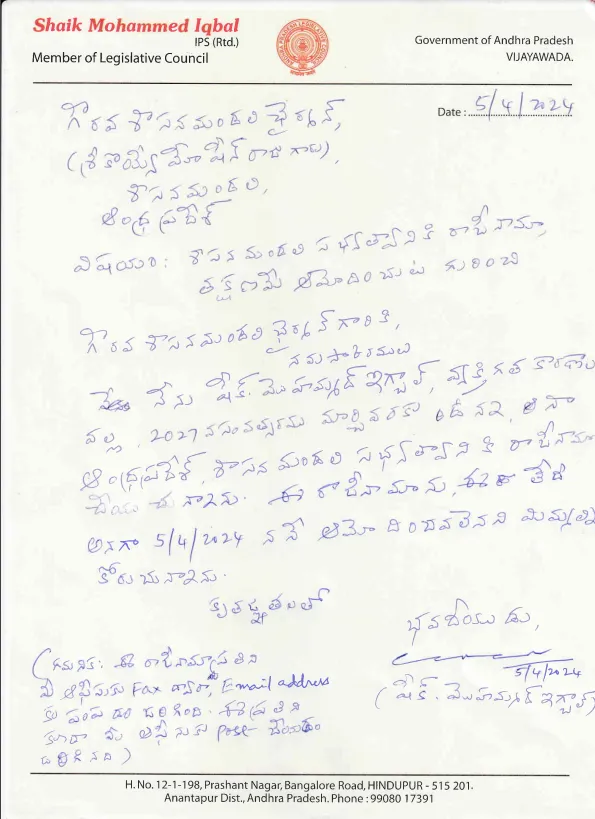 Shaik Mohammed Iqbal
IPS (Rtd.)
Member of Legislative Council
Government of Andhra Pradesh
VIJAYAWADA.
Date : 5/4/2024
గౌరవ శాసనమండలి ఛైర్మన్,
(శ్రీ కొయ్యే మోషేన్ రాజు గారు),
శాసనమండలి,
ఆంధ్రప్రదేశ్
విషయం: శాసన మండలి సభ్యత్వానికి రాజీనామా,
తక్షణమే ఆమోదించుట గురించి
గౌరవ శాసనమండలి ఛైర్మన్ గారికి,
నమస్కారములు
నేను షేక్. మొహమ్మద్ ఇగ్బాల్, వ్యక్తిగత కారణాల
వల్ల, 2027 వ సంవత్సరము మార్చి వరకు ఉన్న, నా
ఆంధ్రప్రదేశ్, శాసన మండలి సభ్యత్వానికి రాజీనామా
చేయుచున్నాను. ఈ రాజీనామాను, ఈ తేదీ
అనగా 5/4/2024 ననే ఆమోదించవలెనని మిమ్మల్ని
కోరుచున్నాను.
కృతజ్ఞతలతో
భవదీయుడు,
5/4/2024
(షేక్. మొహమ్మద్ ఇగ్బాల్)
(గమనిక: ఈ రాజీనామా ప్రతిని
మీ ఆఫీసుకు Fax ద్వారా, Email address
కు పంపడం జరిగింది. ఈ ప్రతిని
కూడా మీ ఆఫీసుకు Post చేయడం
జరిగినది)
H. No. 12-1-198, Prashant Nagar, Bangalore Road, HINDUPUR - 515 201.
Anantapur Dist., Andhra Pradesh. Phone : 99080 17391